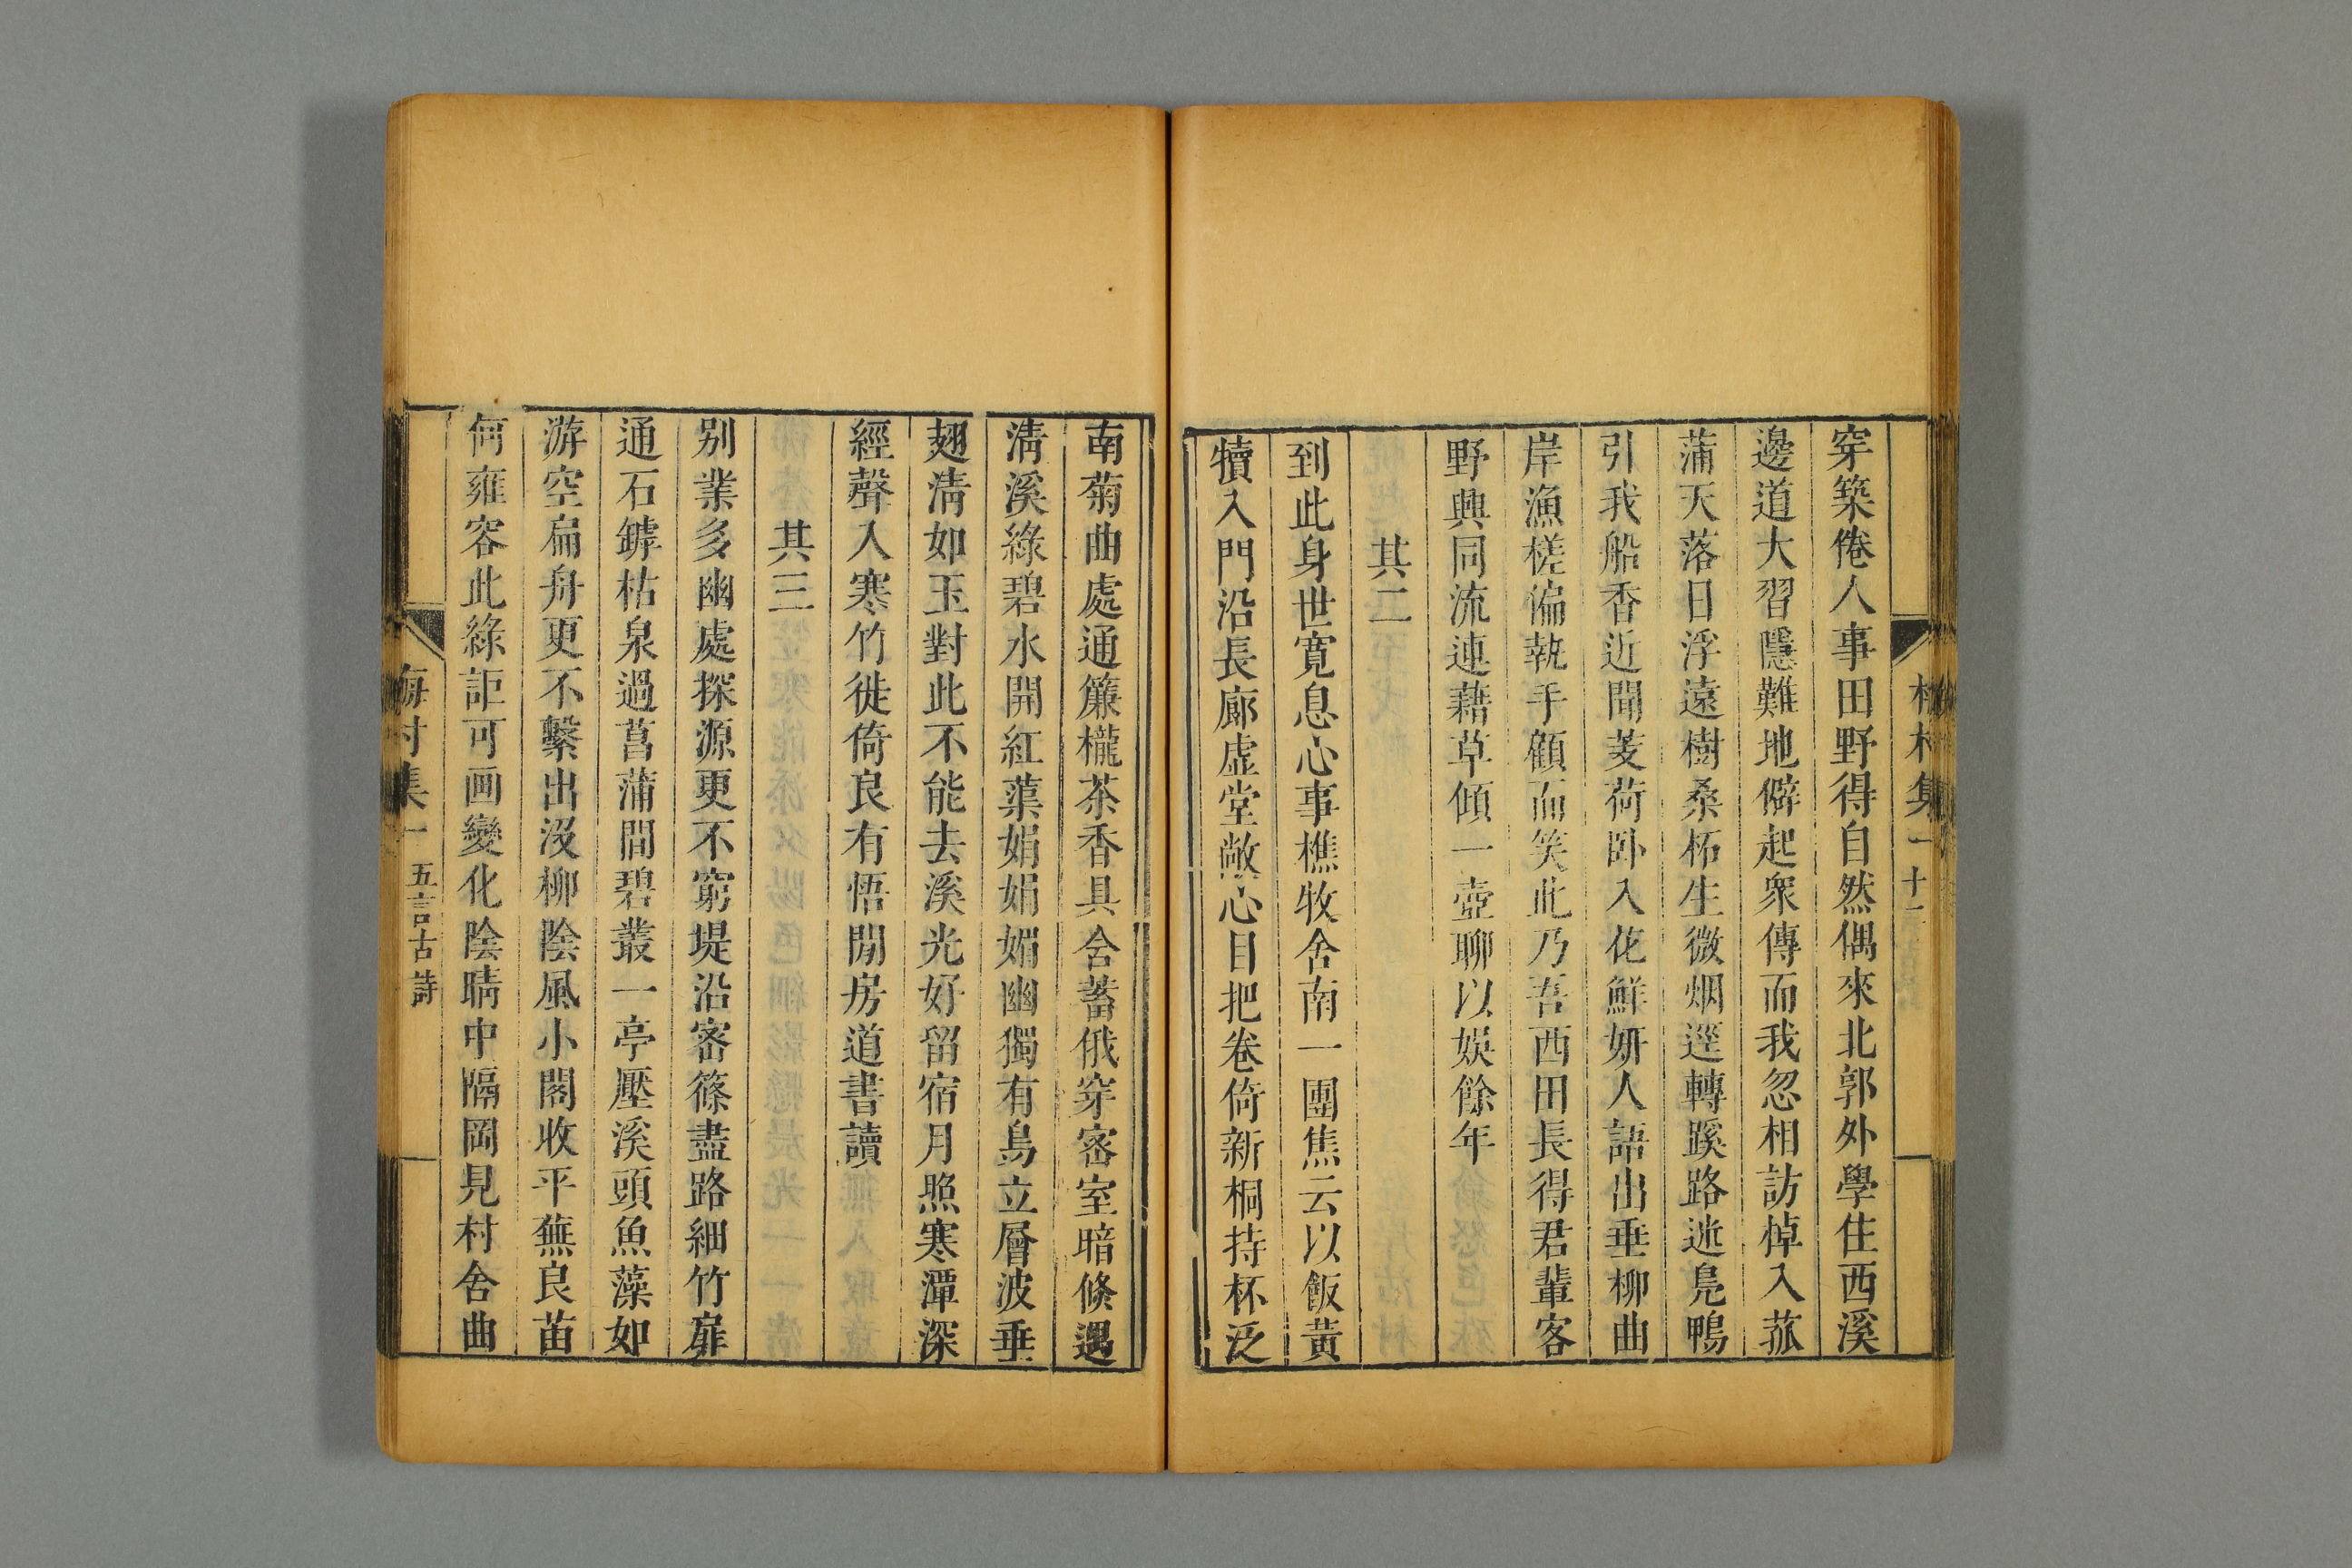 穿築倦人事田野得自然偶來北郭外學住西溪
邊道大習隱難地僻起衆傳而我忽相訪棹入菰
蒲天落日浮遠樹桑柘生微烟逕轉蹊路迷鳧鴨
引我船香近聞芰荷卧入花鮮妍人語出垂柳曲
岸漁槎偏執手顧而笑此乃吾西田長得君輩客
野興同流連藉草傾一壺聊以娛餘年
其二
到此身世寛息心事樵牧舍南一團焦云以飯黄
犢入門沿長廊虛堂敞心目把卷倚新桐持杯泛
南菊曲處通簾櫳茶香具含蓄俄穿密室暗倏遇
清溪綠碧水開紅蕖娟娟媚幽獨有鳥立層波垂
翅清如玉對此不能去溪光好留宿月照寒潭深
經聲入寒竹徙倚良有悟閒房道書讀
其三
别業多幽處探源更不窮堤沿密篠盡路細竹扉
通石罅枯泉過菖蒲間碧叢一亭壓溪頭魚藻如
游空扁舟更不繫出没柳陰風小閣收平蕪良苗
何雍容此綠詎可画變化陰晴中隔岡見村舍曲
梅村集一 五言古詩